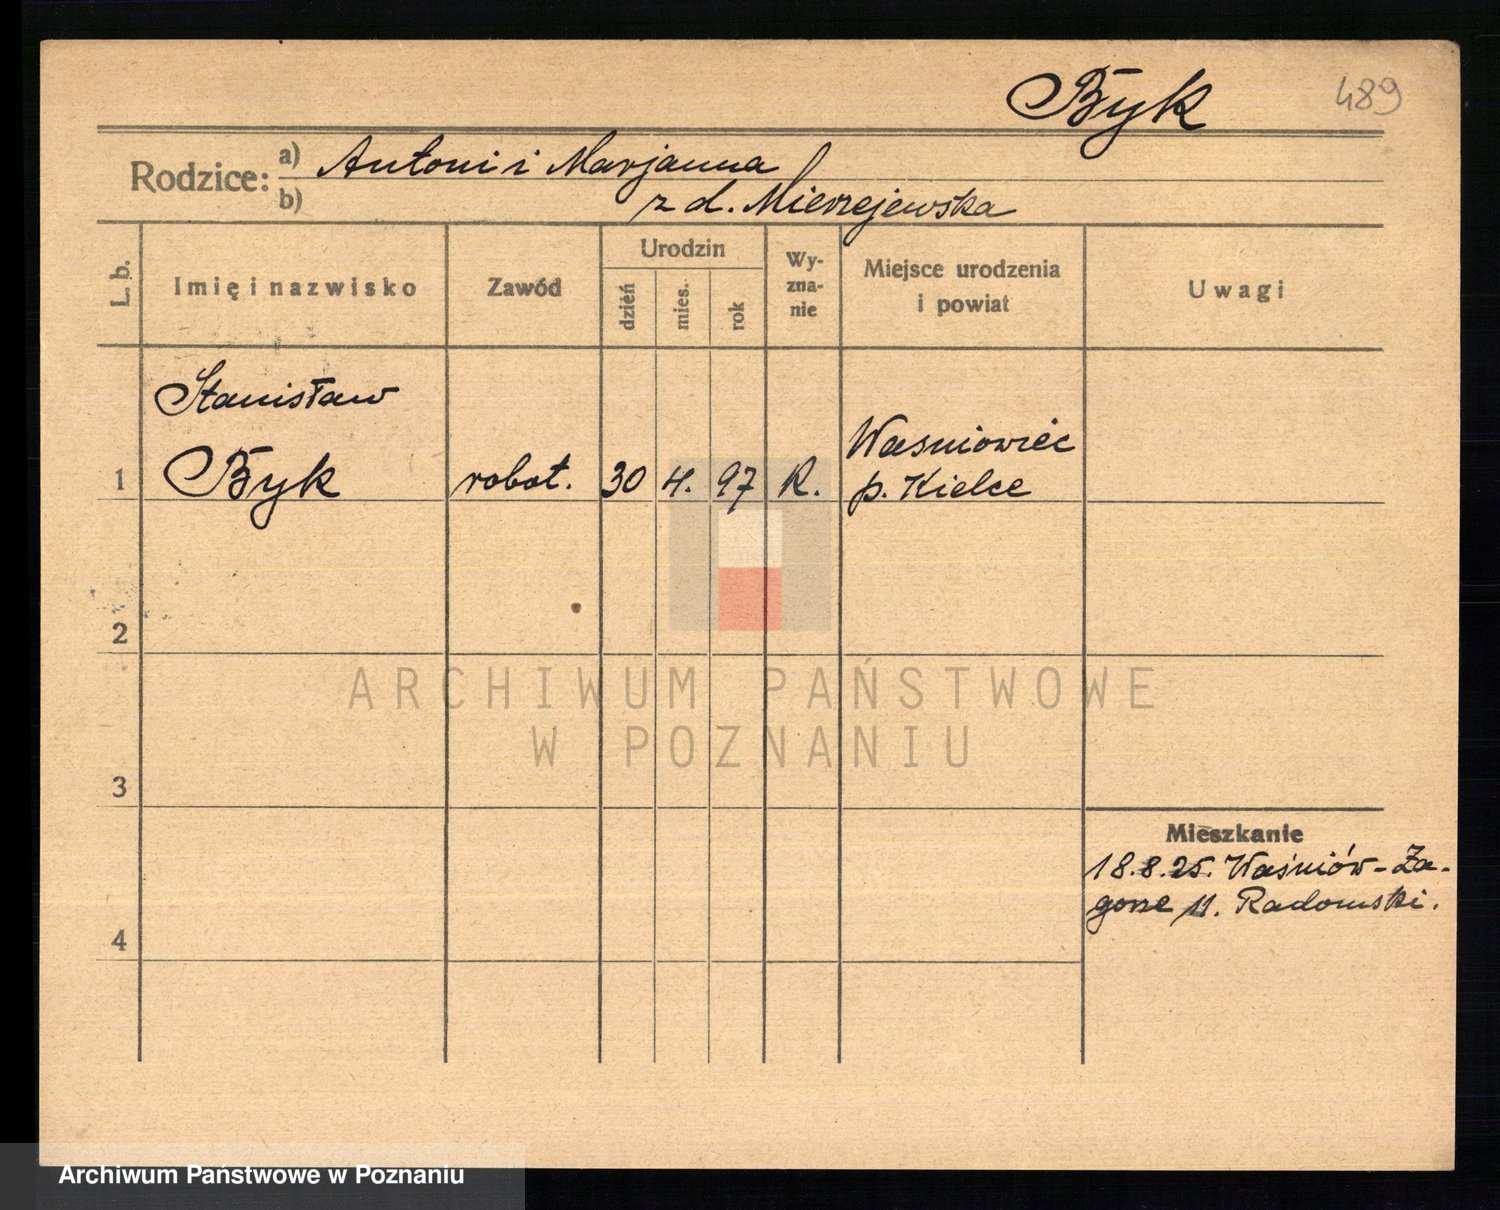 Byk 489
Rodzice: a) Antoni i Marjanna
b) z d. Mierzejewska
L. b. Imię i nazwisko Zawód Urodzin dzień mies. rok Wy-zna-nie Miejsce urodzenia i powiat Uwagi
Stanisław
1 Byk robot. 30 4. 97 R. Waśniowiec
p. Kielce
2
3
4
Mieszkanie
18.8.25. Waśniów-Za-
gorze 11. Radomski.
ARCHIWUM PAŃSTWOWE
W POZNANIU
Archiwum Państwowe w Poznaniu